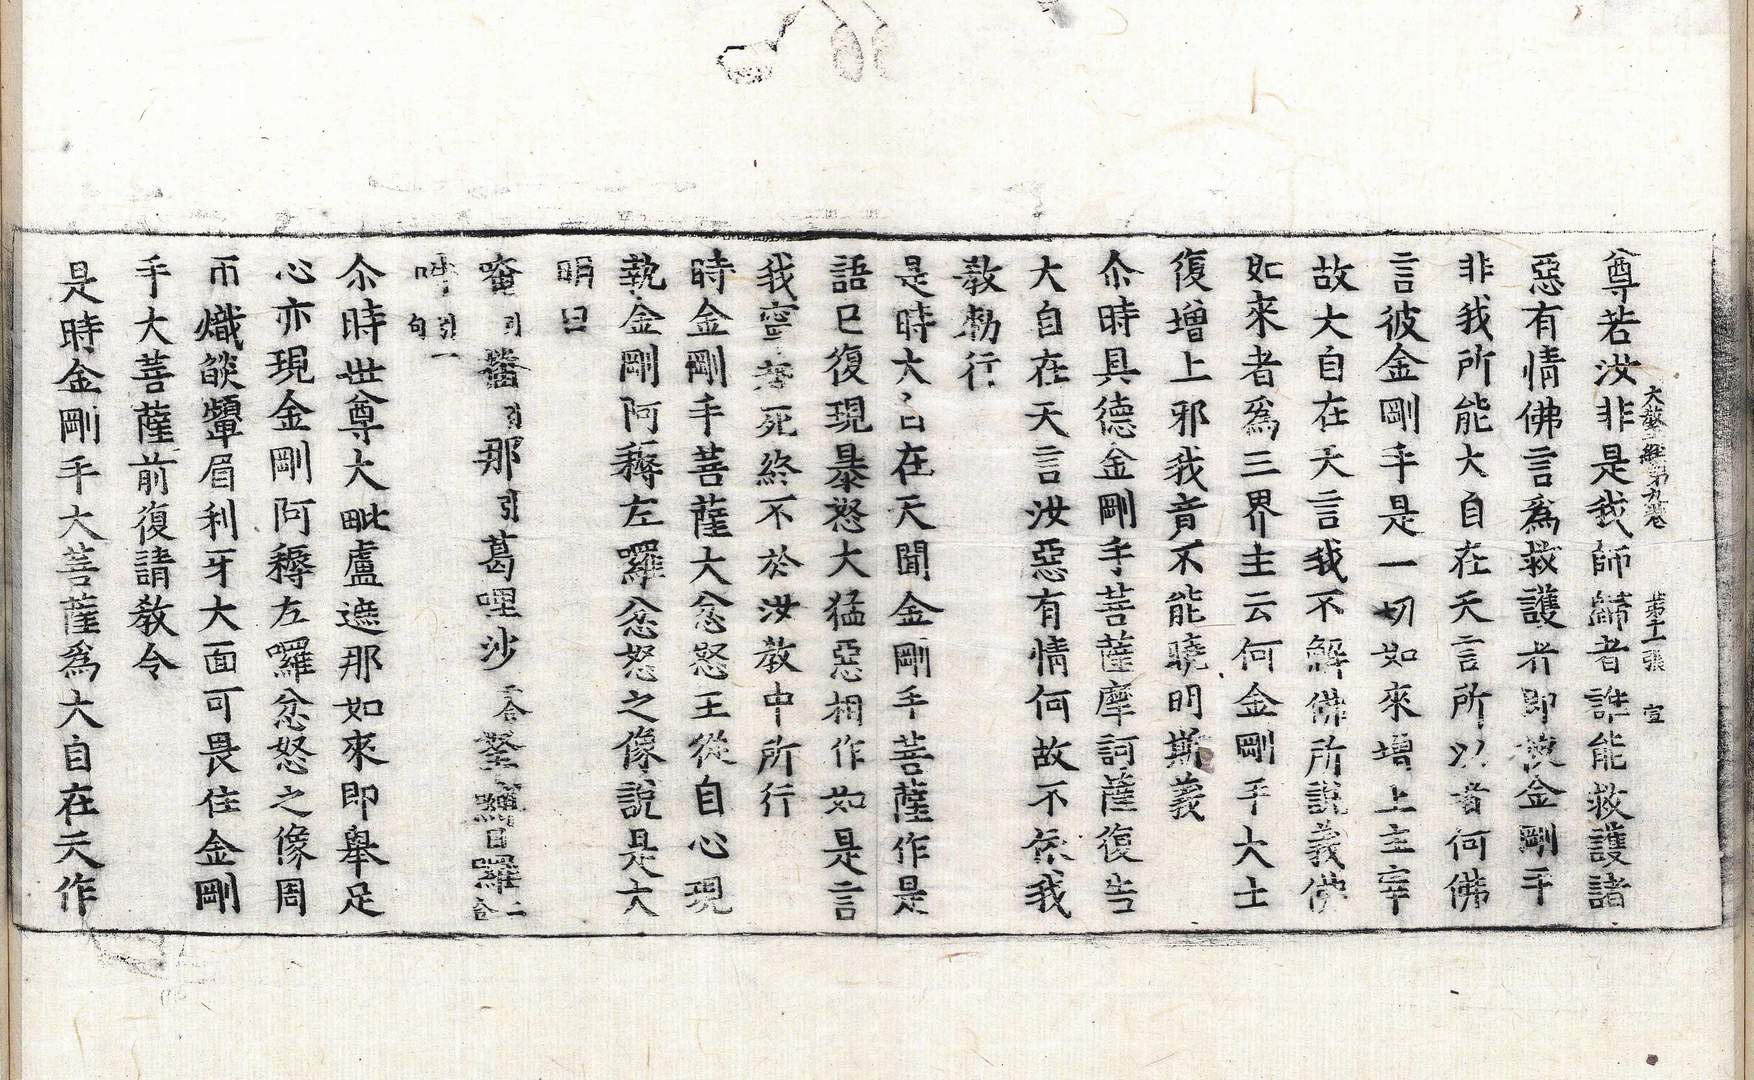 大敎王經第九卷 第十一張 宣
尊若汝非是我師歸者誰能救護諸
惡有情佛言爲救護者即彼金剛手
非我所能大自在天言所以者何佛
言彼金剛手是一切如來增上主宰
故大自在天言我不解佛所說義佛
如來者爲三界主云何金剛手大士
復增上邪我音不能曉明斯義
尒時具德金剛手菩薩摩訶薩復告
大自在天言汝惡有情何故不依我
敎勅行
是時大自在天聞金剛手菩薩作是
語已復現暴怒大猛惡相作如是言
我寧 死終不於汝敎中所行
時金剛手菩薩大忿怒王從自心現
執金剛阿耨左囉忿怒之像說是大
明曰
唵引 引那引葛哩沙二合 日囉二合
吽引一句
尒時世尊大毗盧遮那如來即舉足
心亦現金剛阿耨左囉忿怒之像周
帀熾燄顰眉利牙大面可畏住金剛
手大菩薩前復請敎令
是時金剛手大菩薩爲大自在天作